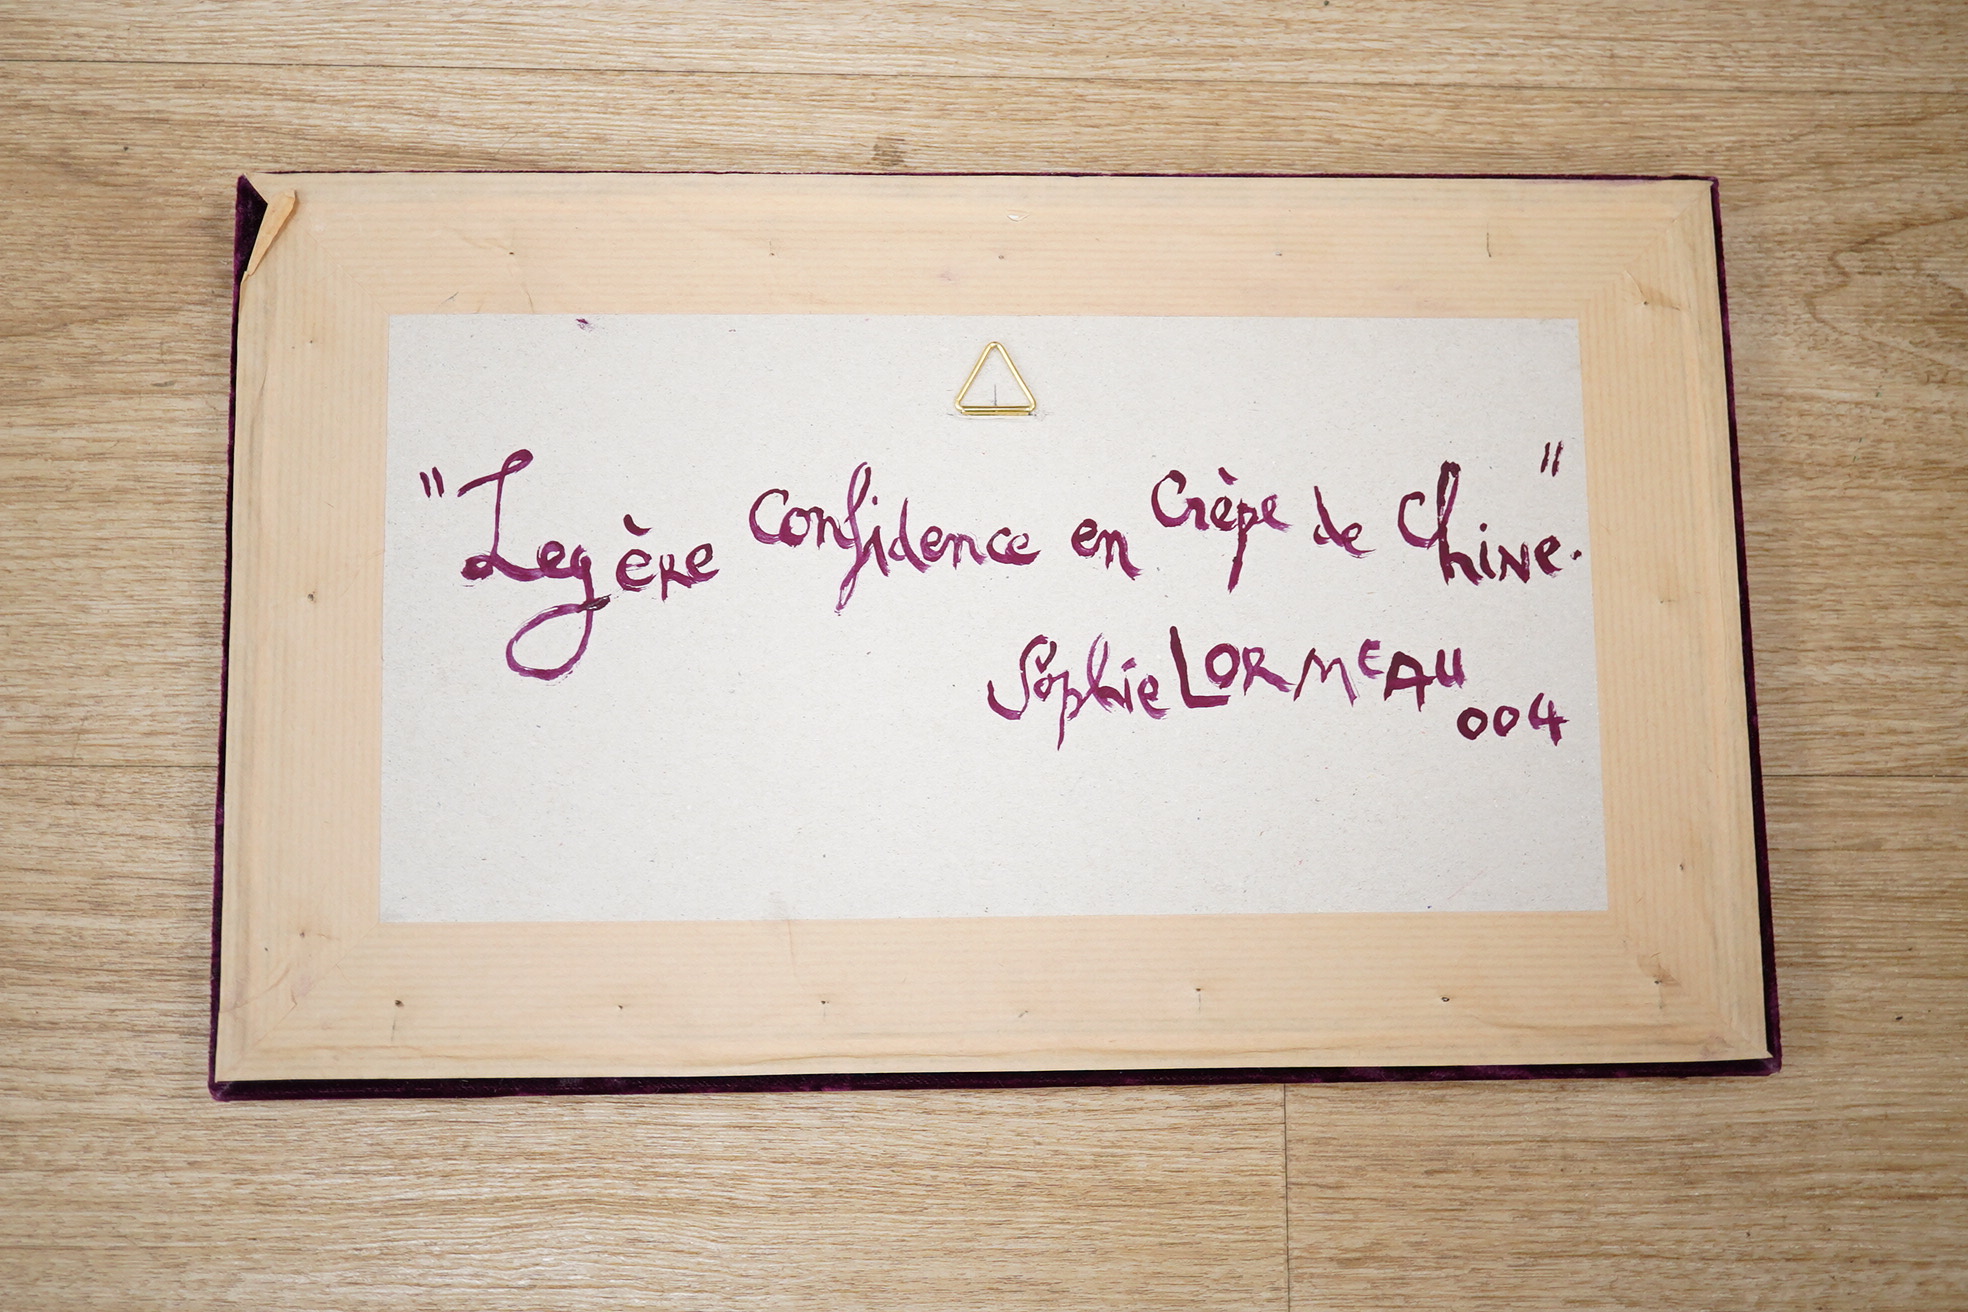 "Legère confidence en Crèpe de Chine."
Sophie LORMEAU
004